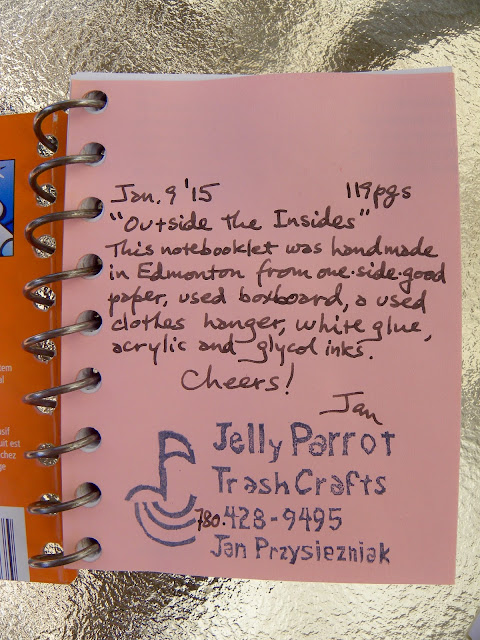 Jan. 9 '15 119pgs
"Outside the Insides"
This notebooklet was handmade
in Edmonton from one-side-good
paper, used boxboard, a used
clothes hanger, white glue,
acrylic and glycol inks.
Cheers!
Jan
Jelly Parrot
TrashCrafts
780.428-9495
Jan Przysiezniak